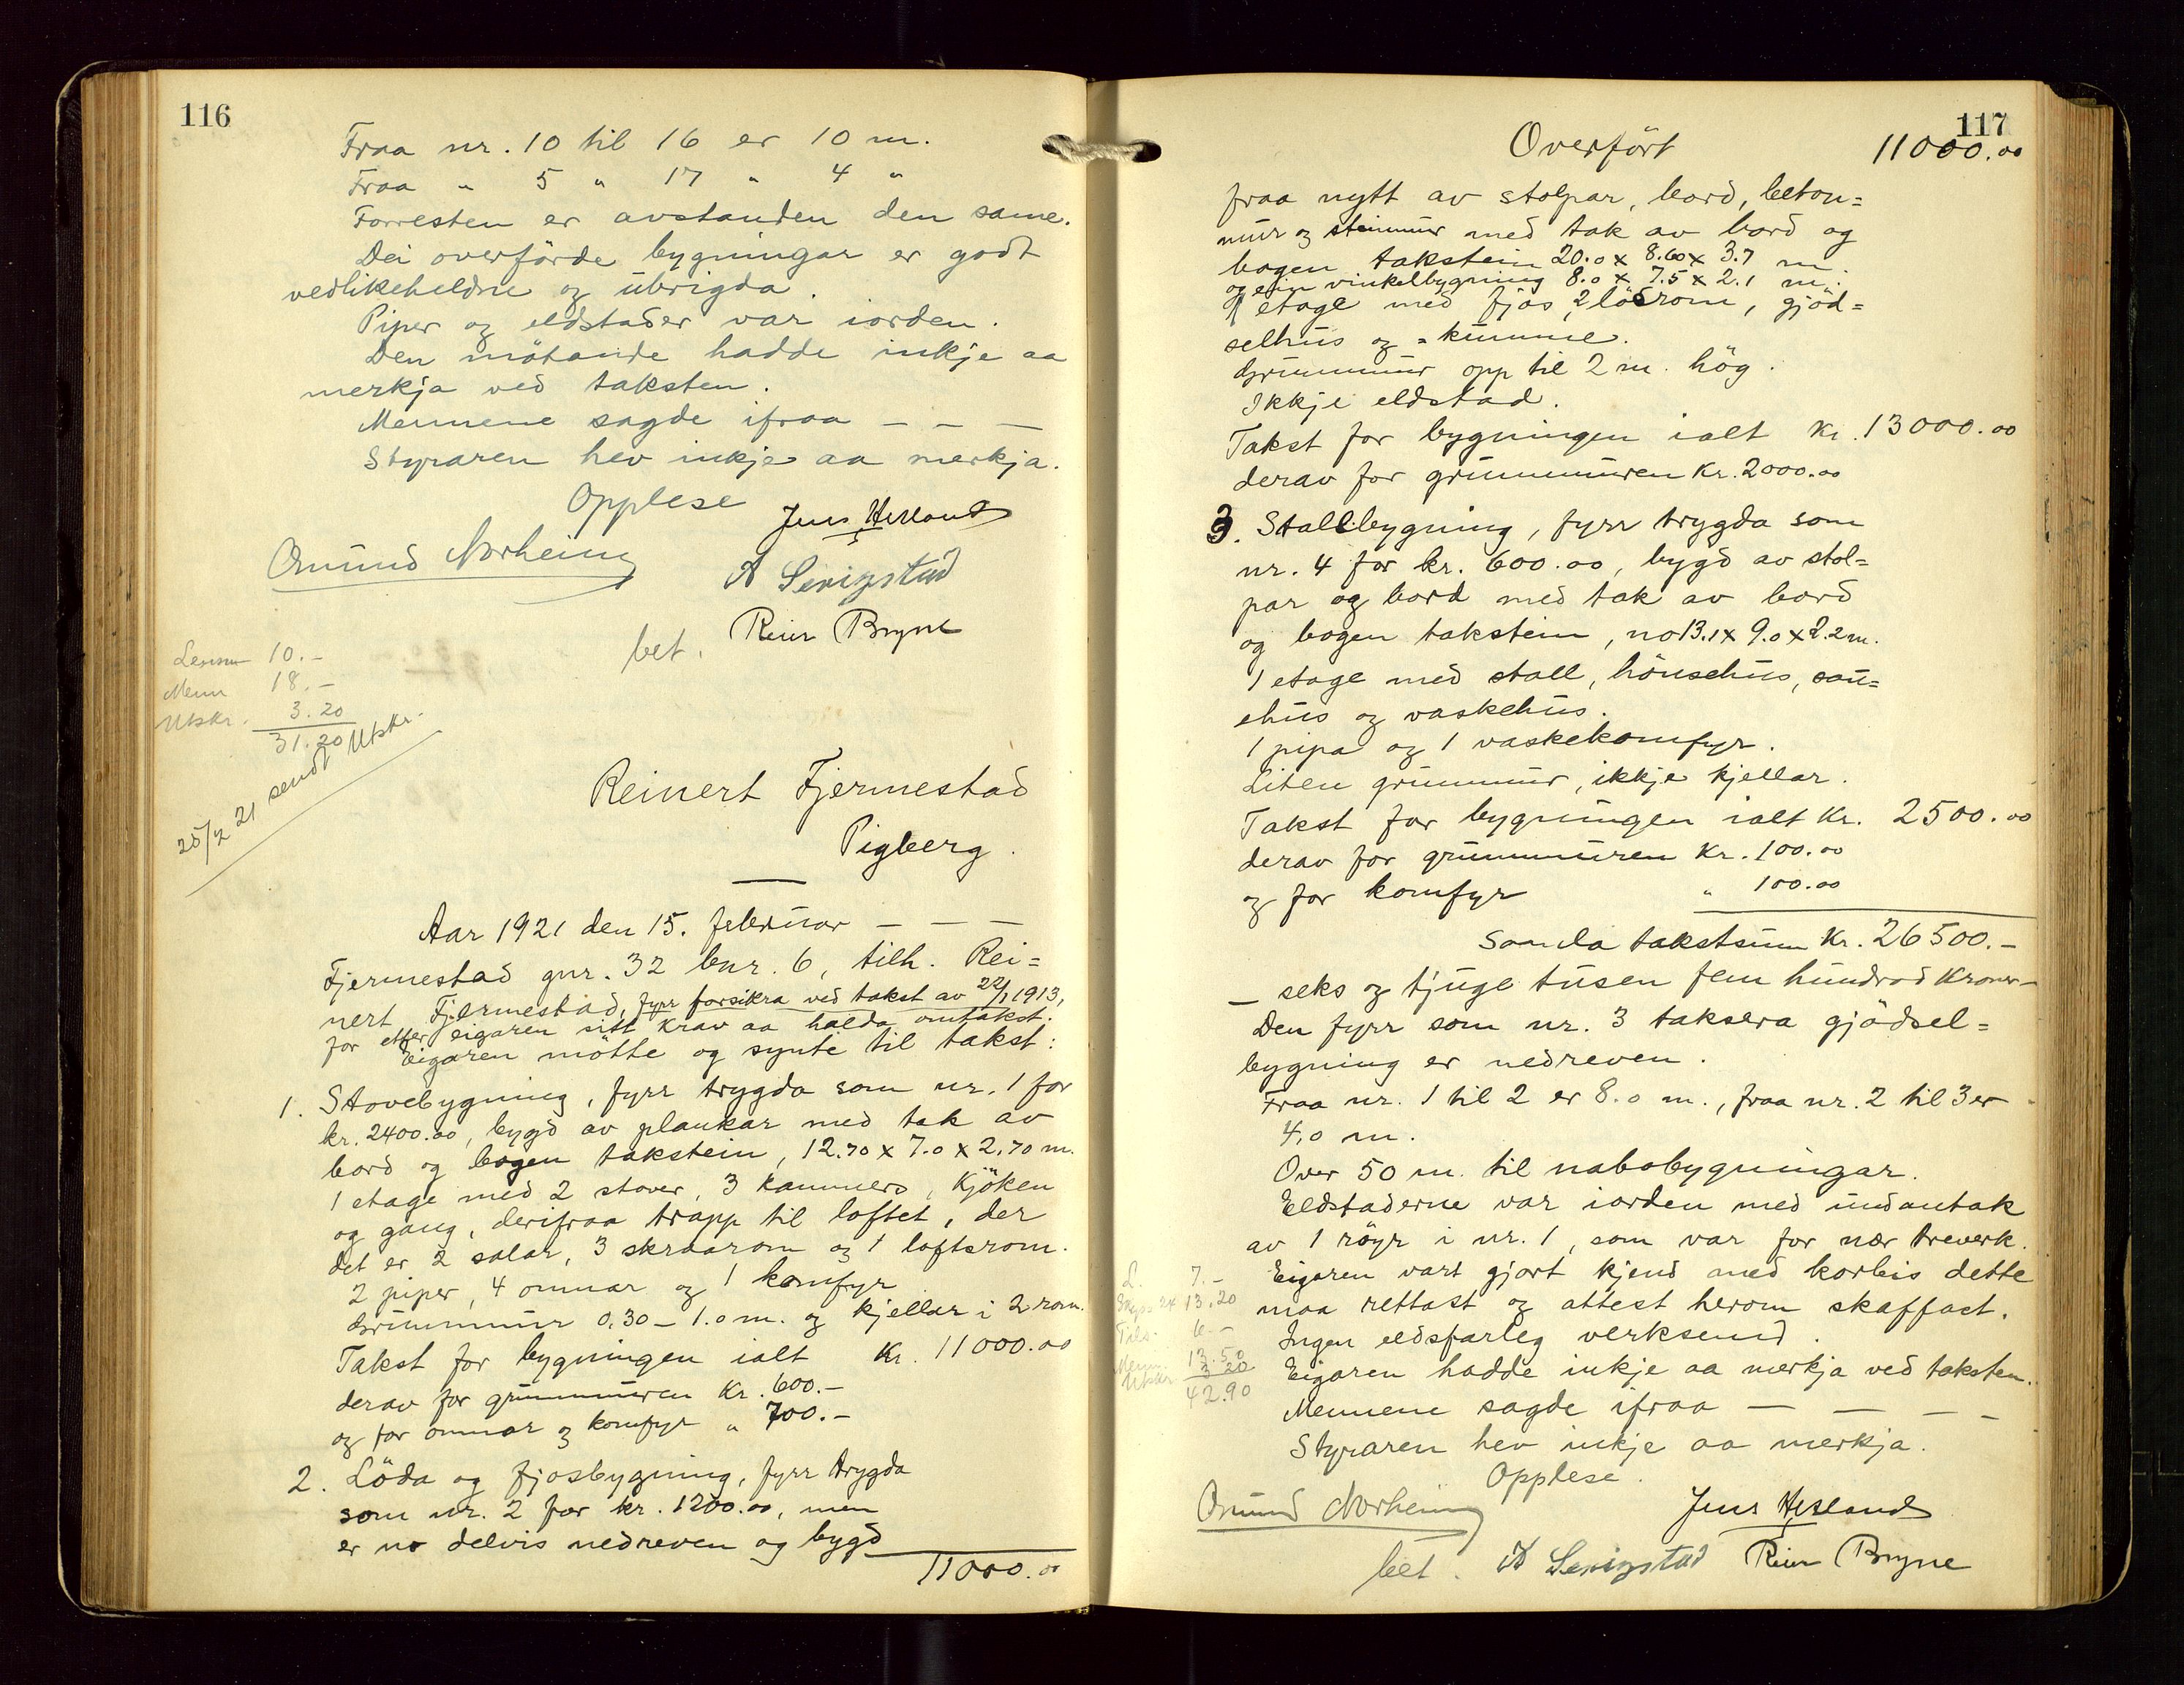 116
Fraa nr. 10 til 16 er 10 m.
Fraa " 5 " 17 " 4 "
Forresten er avstanden den same.
Dei overförde bygningar er godt
vedlikeheldne og übrigda.
Piper og eldstader var iorden.
Den mötande hadde inkje aa
merkja ved taksten.
Mennene sagde ifraa — — —
Styraren hev inkje aa merkja.
Opplese
Jens Hesland
Omund Norheim
A Serigstad
Reier Bryne
bet.
Lensm 10.-
Menn 18.-
Utskr. 3.20
31.20
25/2 21 sendt Utskr.
Reinert Fjermestad
Pigberg.
Aar 1921 den 15. februar — — —
Fjermestad gnr. 32 bnr. 6, tilh. Rei=
nert Fjermestad, fyrr forsikra ved takst av 22/1 1913,
for etter eigaren sitt krav aa halda omtakst.
Eigaren mötte og synte til takst:
1. Stovebygning, fyrr trygda som nr. 1 for
kr. 2400.00, bygd av plankar med tak av
bord og bogen takstein, 12.70 x 7.0 x 2.70 m.
1 etage med 2 stover, 3 kammers, Kjöken
og gang, derifraa trapp til loftet, der
det er 2 salar, 3 skraarom og 1 loftsrom.
2 piper, 4 omnar og 1 komfyr
Grunnmur 0.30 – 1.0 m. og kjellar i 2 rom.
Takst for bygningen ialt Kr. 11000.00
derav for grunnmuren Kr. 600.-
og for omnar og komfyr " 700.-
2. Löda og fjosbygning, fyrr trygda
som nr. 2 for kr. 1200.00, men
er no delvis nedreven og bygd
11000.00
117
Overfört 11000.00
fraa nytt av stolpar, bord, beton=
mur og steinmur med tak av bord og
bogen takstein 20.0 x 8.60 x 3.7 m.
og ein vinkelbygning 8.0 x 7.5 x 2.1 m.
1 etage med fjos, 2 löderom, gjöd=
selhus og =kumme.
Grunnmur opp til 2 m. hög.
Ikkje eldstad.
Takst for bygningen ialt Kr. 13000.00
derav for grunnmuren Kr. 2000.00
3. Stallbygning, fyrr trygda som
nr. 4 for kr. 600.00, bygd av stol=
par og bord med tak av bord
og bogen takstein, no 13.1 x 9.0 x 2.2 m.
1 etage med stall, hönsehus, sau=
ehus og vaskehus.
1 pipa og 1 vaskekomfyr.
Liten grunnmur, ikkje kjellar.
Takst for bygningen ialt Kr. 2500.00
derav for grunnmuren Kr. 100.00
og for komfyr " 100.00
Samla takstsum Kr. 26500.—
— seks og tjuge tusen fem hundrad Kroner —
Den fyrr som nr. 3 taksera gjödsel=
bygning er nedreven.
Fraa nr. 1 til 2 er 8.0 m., fraa nr. 2 til 3 er
4,0 m.
Over 50 m. til nabobygningar.
Eldstaderne var iorden med undantak
av 1 röyr i nr. 1, som var for nær treverk.
Eigaren vart gjort kjend med korleis dette
maa rettast og attest herom skaffast.
Ingen eldsfarleg verksemd.
Eigaren hadde inkje aa merkja ved taksten.
Mennene sagde ifraa — — — —
Styraren hev inkje aa merkja.
Opplese.
L. 7.-
Skyss 13.20
6.-
Menn 13.50
Utskr. 3.20
42.90
Omund Norheim
Jens Hesland
bet. A Serigstad Reier Bryne